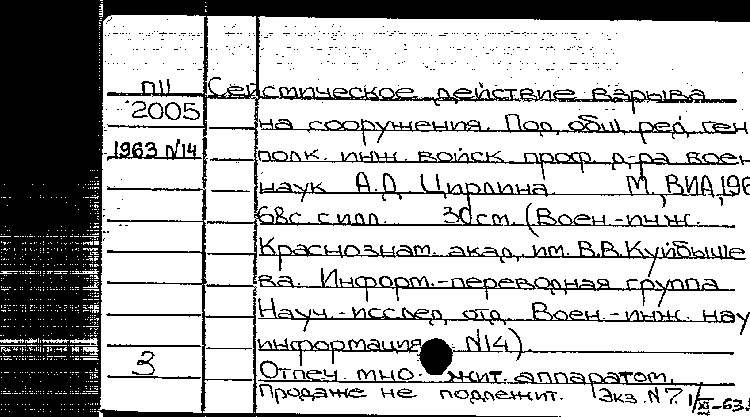 П11 Сейсмическое действие взрыва
2005
на сооружения. Под общ. ред. ген
1963 N14 полк. инж. войск проф. д-ра воен
наук А.Д. Цирлина М., ВИА, 196
68с. с илл. 30см. (Воен-инж.
Краснознам. акад. им. В.В.Куйбыше
ва. Информ.-переводная группа
Науч.-исслед. отд. Воен-инж. нау
информация N14).
3 Отпеч. мно жит. аппаратом.
Продаже не подлежит. Экз. N7